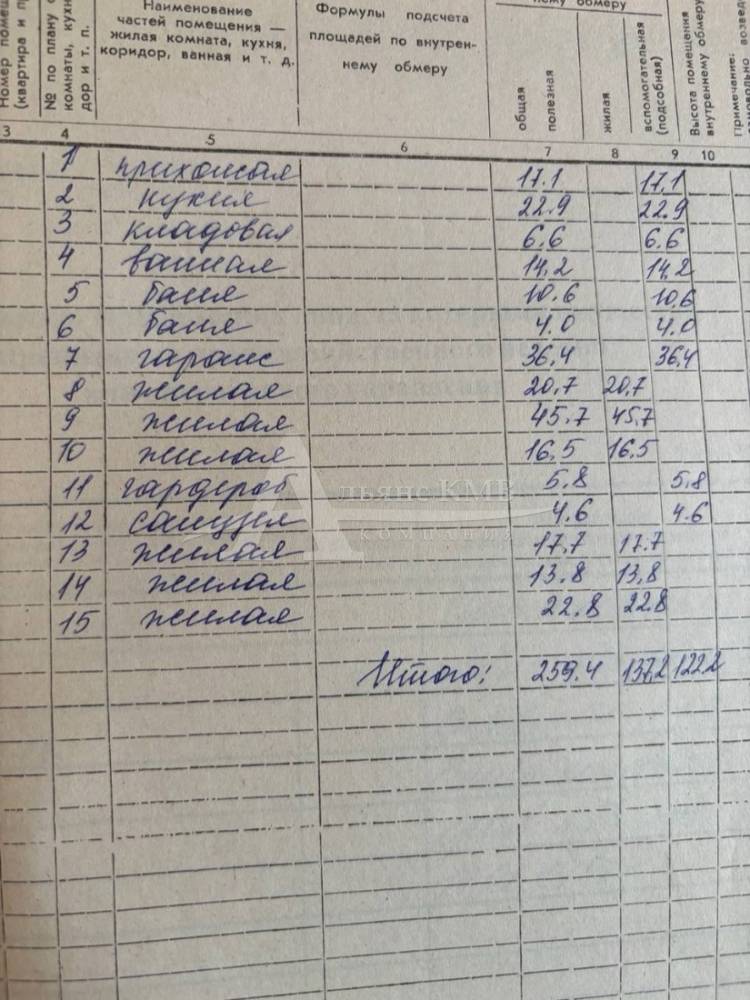 Номер помещ
(квартира и п
№ по плану с
комнаты, кухн
дор и т. п.
Наименование
частей помещения —
жилая комната, кухня,
коридор, ванная и т. д.
Формулы подсчета
площадей по внутрен-
нему обмеру
нему обмеру
общая
полезная
жилая
вспомогательная
(подсобная)
Высота помещения
внутреннему обмеру
Примечание:
самовольно возведе
3 4 5 6 7 8 9 10
1 прихожая 17.1 17.1
2 кухня 22.9 22.9
3 кладовая 6.6 6.6
4 ванная 14,2 14,2
5 баня 10.6 10,6
6 баня 4.0 4.0
7 гараж 36,4 36,4
8 жилая 20,7 20,7
9 жилая 45.7 45,7
10 жилая 16,5 16.5
11 гардероб 5.8 5,8
12 санузел 4.6 4.6
13 жилая 17.7 17.7
14 жилая 13.8 13,8
15 жилая 22.8 22.8
Итого: 259.4 137,2 122.2
Альянс КМВ
компания